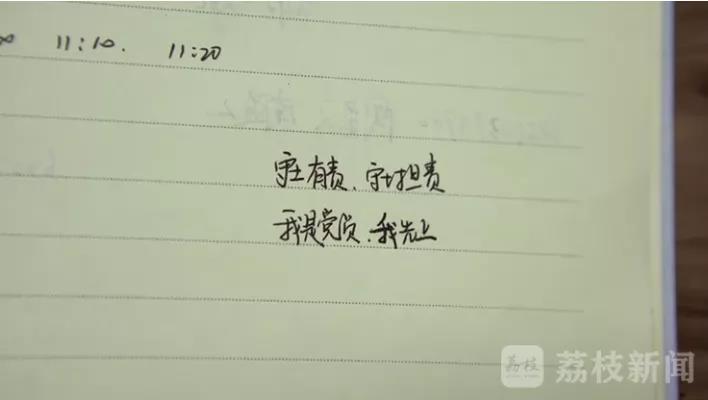 11:10. 11:20
守土有责、守土担责
我是党员、我先上
荔枝 荔枝新闻